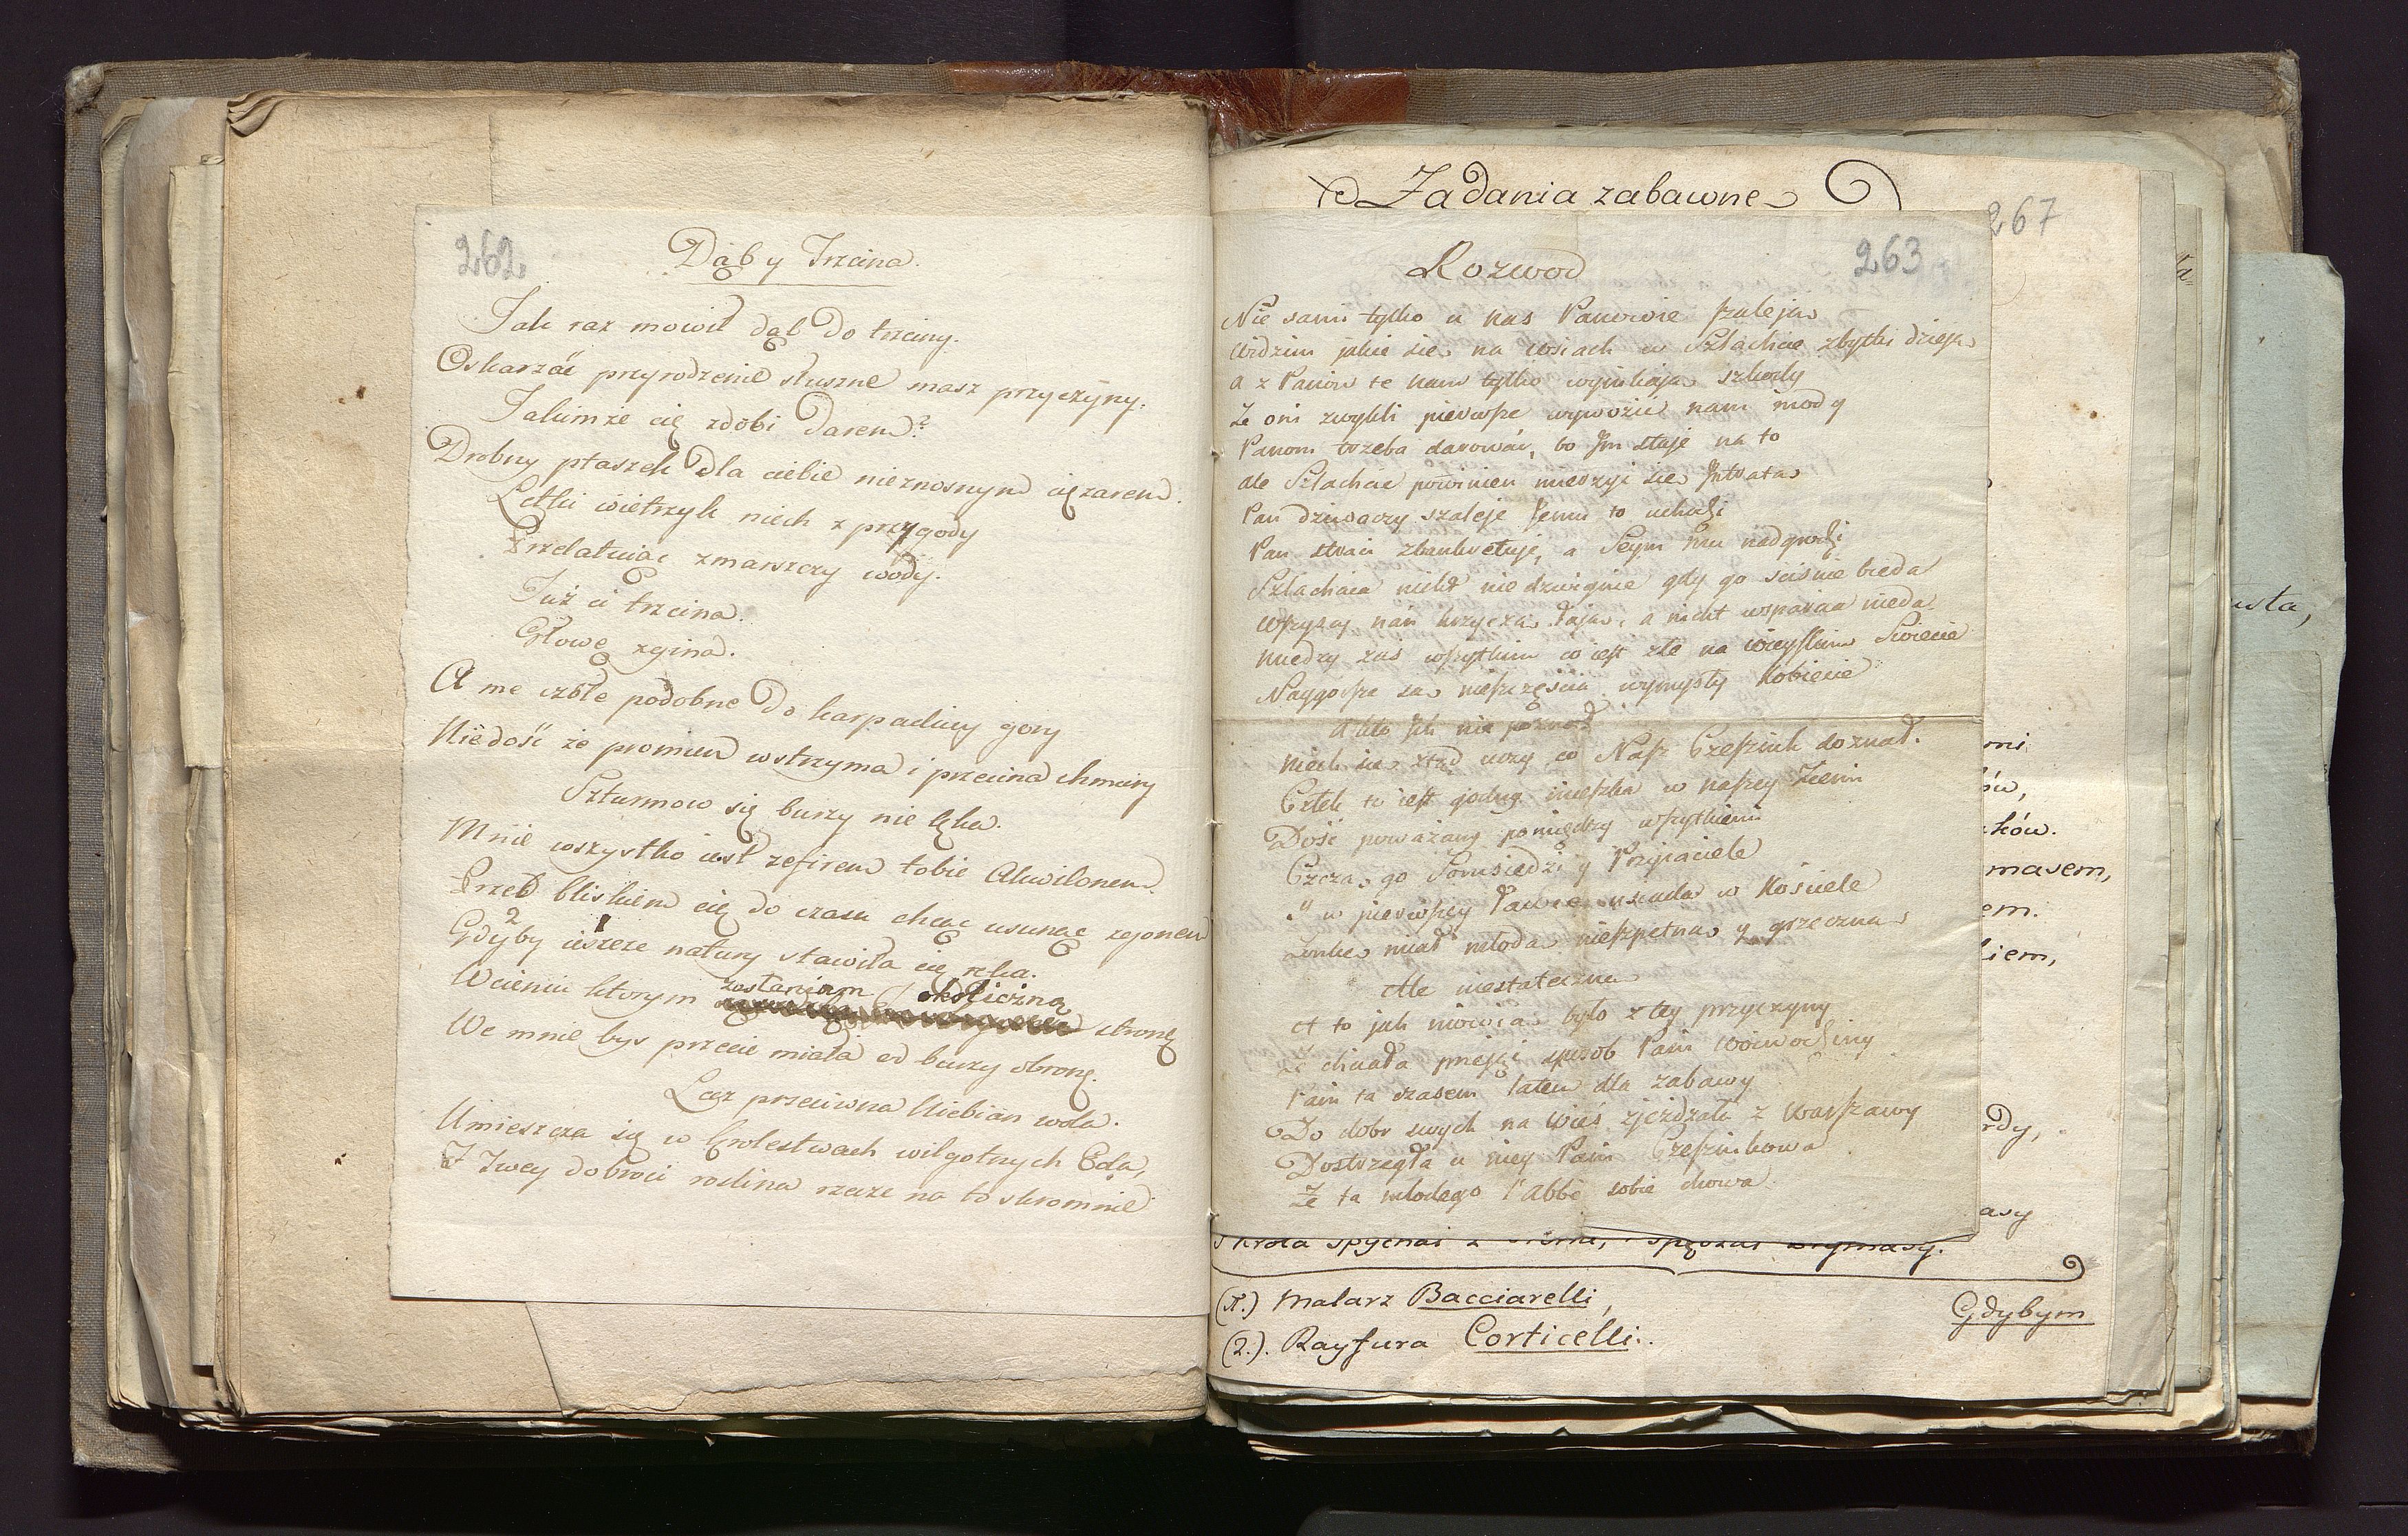 262
Dąb y Trzcina.
Tak raz mowił dąb do trzciny.
Oskarzać przyrodzenie słuszne masz przyczyny.
Jakimże cię zdobi darem?
Drobny ptaszek dla ciebie nieznosnym cięzarem.
Letki wietrzyk niech z przygody
Przelatuiąc zmarszczy wody.
Już ci trzcina
Głowę zgina.
A me czołe podobne do karpackiey gory
Niedość że promien wstrzyma i przecina chmury
Szturmow się burzy nie lęka.
Mnie wszystko iest zefirem tobie Akwilonem.
Przed bliskiem cię do czasu chcąc usunąc zgonem
Gdyby ieszcze natury stawiła cię ręka.
W cieniu ktorym zasłaniam okoliczną stronę
We mnie bys przecie miała od burzy obronę.
Lecz przeciwna Niebian wola.
Umieszcza się w krolestwach wilgotnych Eola,
Z Twey dobroci roslina rzecze na to skromnie
Zadania zabawne
267
263
Rozwod
Nie sami tylko u nas Panowie szaleją
Widzim jakie się na wsiach w Szlachcie zbytki dzieją
a z Panow te nam tylko wynikają szkody
Że oni zwykli pierwsze wywozić nam mody
Panom trzeba darować, bo Im staje na to
ale Szlachcic powinien mierzyć się Intratą
Pan dziwaczy szaleje Jemu to uchodzi
Pan straci zbankretuje, a Seym mu nadgrodzi
Szlachcica nikt nie dzwignie gdy go sciśnie bieda
Wszyscy nań krzyczą łają, a nicht wsparcia nieda
miedzy zas wszytkim co iest złe na wszystkim Swiecie
Naygorsze są nieszczęścia wymysły Kobiecie
a kto Ich nie poznał
niech się ztąd uczy co Nasz Cześnik doznał.
Człek to iest godny mieszka w naszey Ziemi
Dość poważany pomiędzy wszytkiemi
Czczą go Somsiedzi y Przyjaciele
w pierwszey Ławie usiada w Kościele
Zonkę miał młodą nieszpetną y grzeczną
Ale niestateczną
A to jak mowią było z tey przyczyny
Że chciała przejąć sposob Pani Woiewodziny
Pani ta czasem latem dla zabawy
Do dobr swych na wieś zjeżdzała z Warszawy
Dostrzegła u niey Pani Cześnikowa
Że ta młodego l'Abbé sobie chowa
usta,
ów,
ków.
masem,
em.
kiem,
rdy,
asy
(1.) Malarz Bacciarelli,
(2.). Rayfura Corticelli.
Gdybym